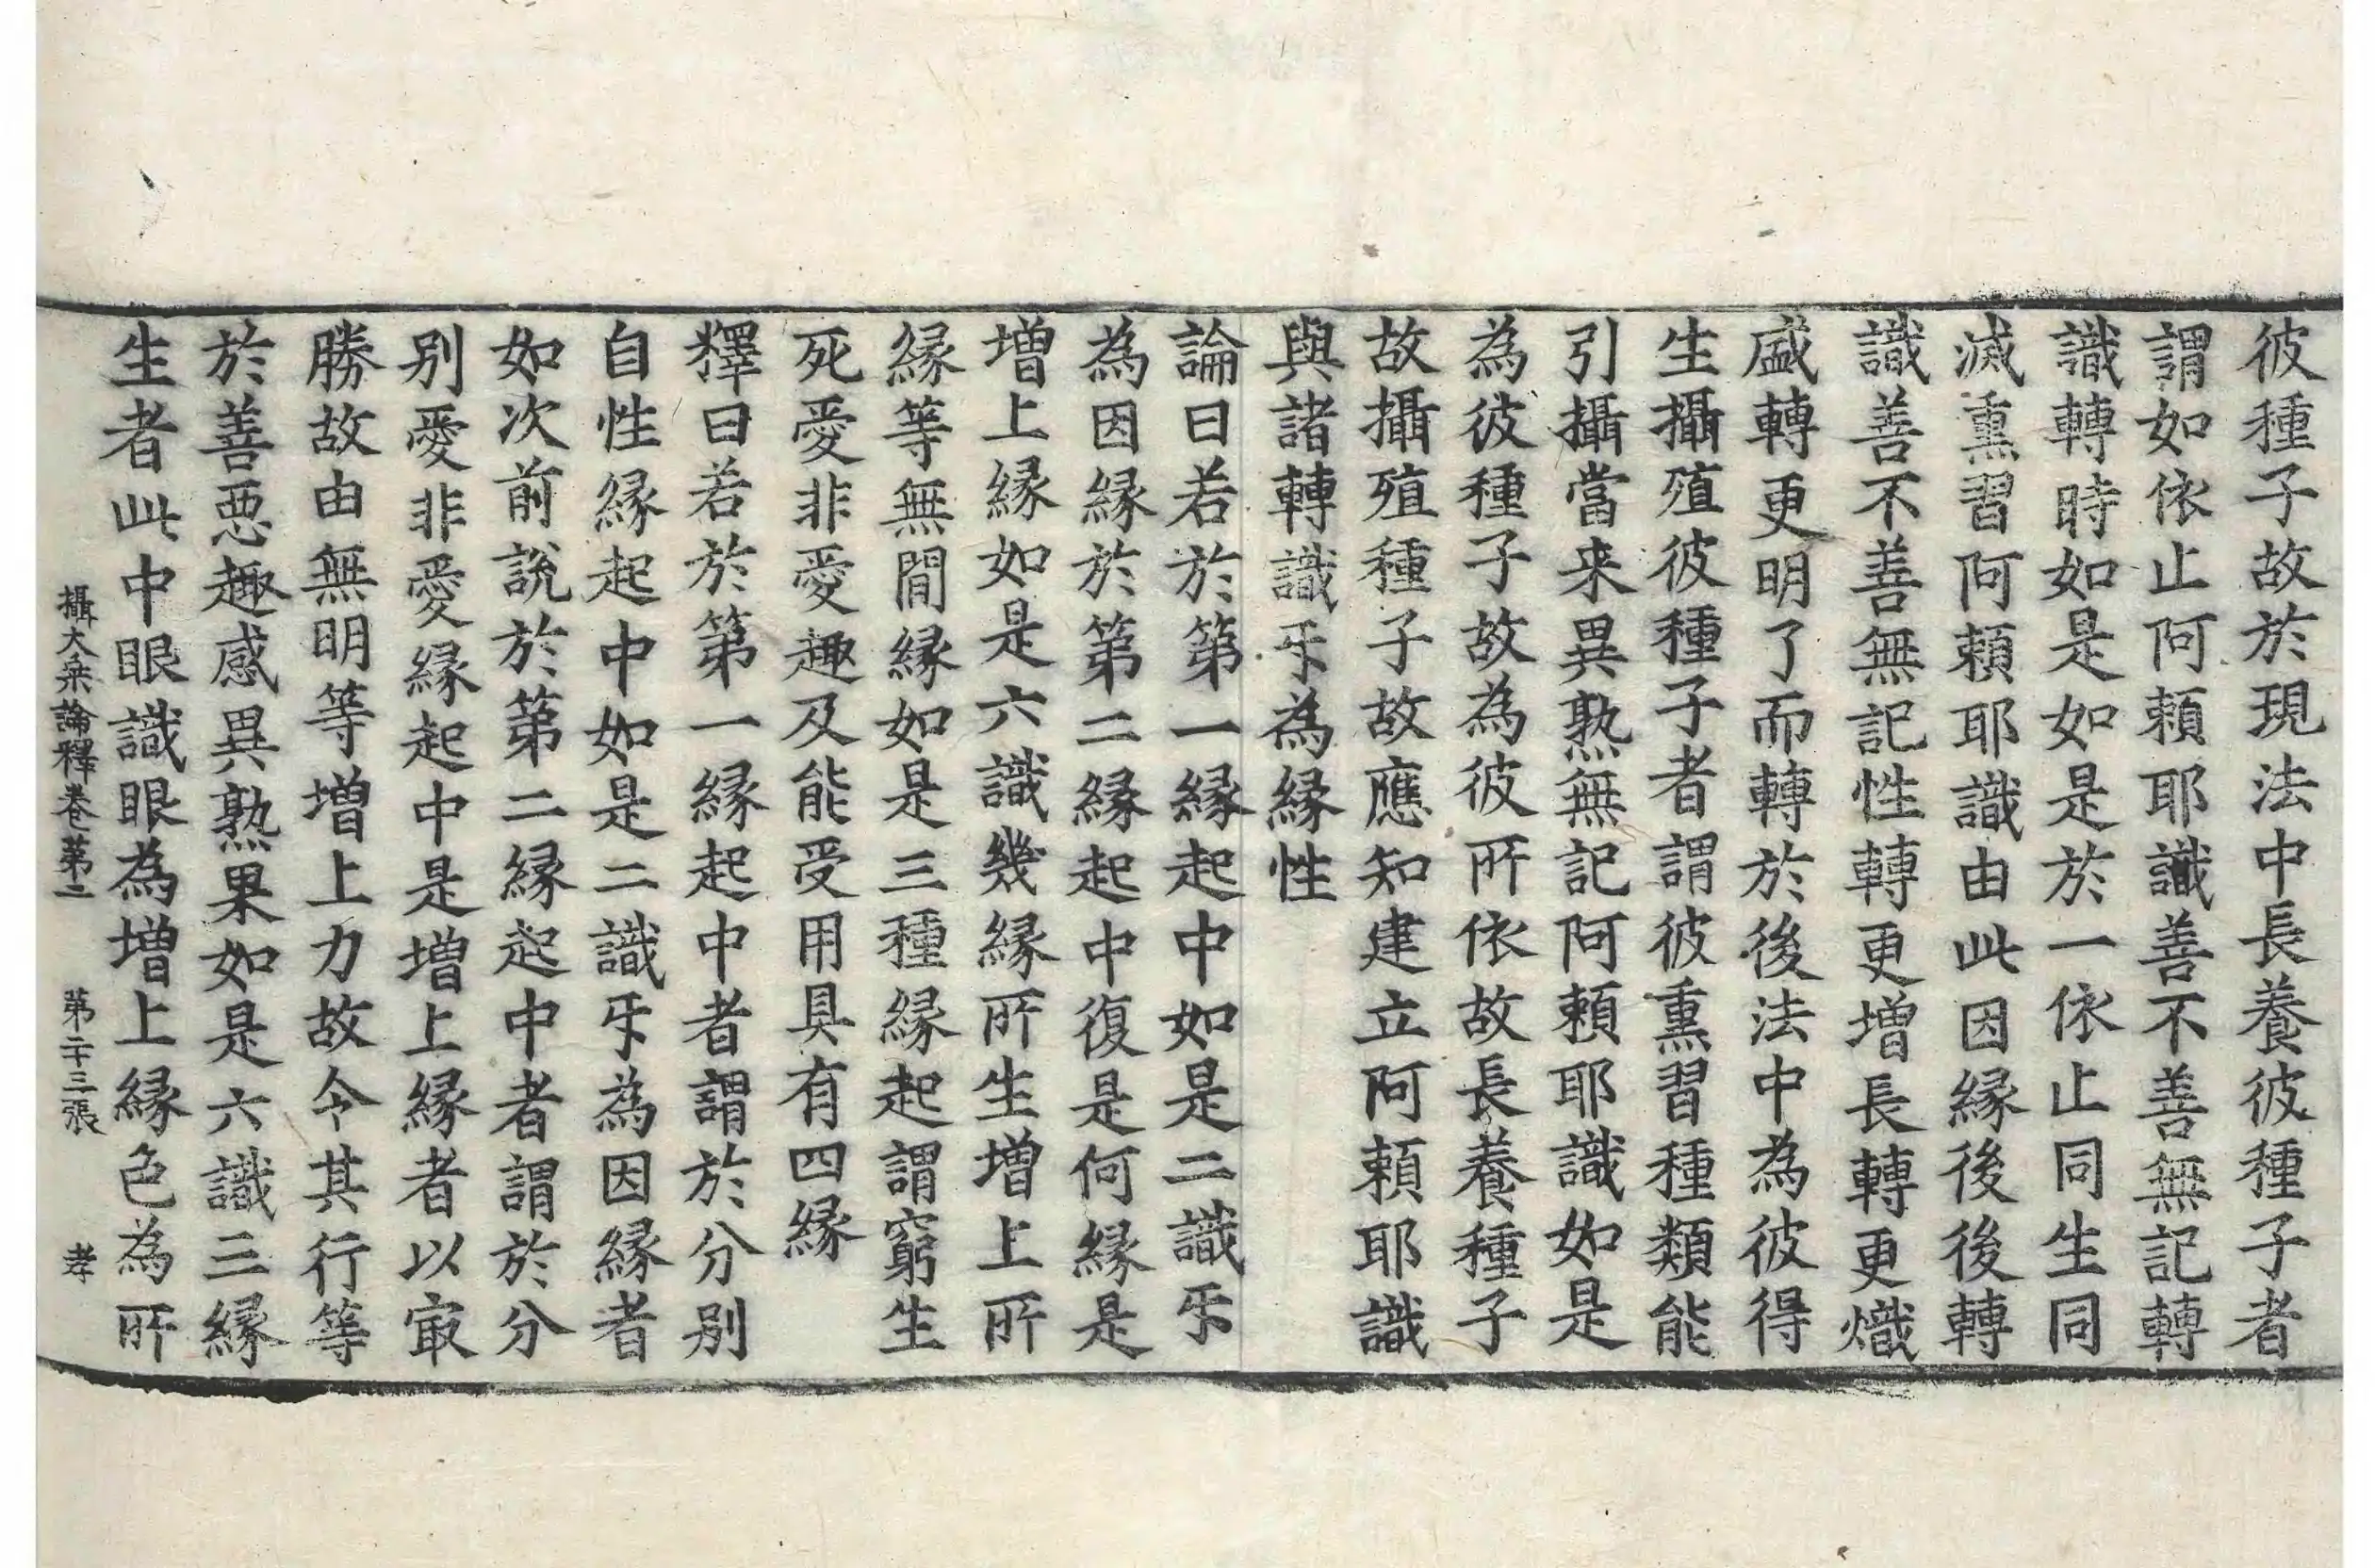 彼種子故於現法中長養彼種子者
謂如依止阿頼耶識善不善無記轉
識轉時如是如是於一依止同生同
滅熏習阿頼耶識由此因縁後後轉
識善不善無記性轉更増長轉更熾
盛轉更明了而轉於後法中為彼得
生攝殖彼種子者謂彼熏習種類能
引攝當来異熟無記阿頼耶識如是
為彼種子故為彼所依故長養種子
故攝殖種子故應知建立阿頼耶識
與諸轉識㸦為縁性
論曰若於第一縁起中如是二識㸦
為因縁於第二縁起中復是何縁是
増上縁如是六識幾縁所生増上所
縁等無間縁如是三種縁起謂窮生
死愛非愛趣及能受用具有四縁
釋曰若於第一縁起中者謂於分別
自性縁起中如是二識㸦為因縁者
如次前說於第二縁起中者謂於分
別愛非愛縁起中是増上縁者以㝡
勝故由無明等増上力故令其行等
於善惡趣感異熟果如是六識三縁
生者此中眼識眼為増上縁色為所
攝大乗論釋卷第二 第二十三張 孝